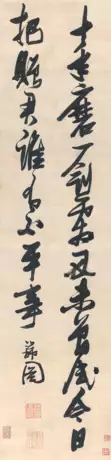 十年磨一劍霜刃未曾試今日
把贈君誰為不平事 瑞圖